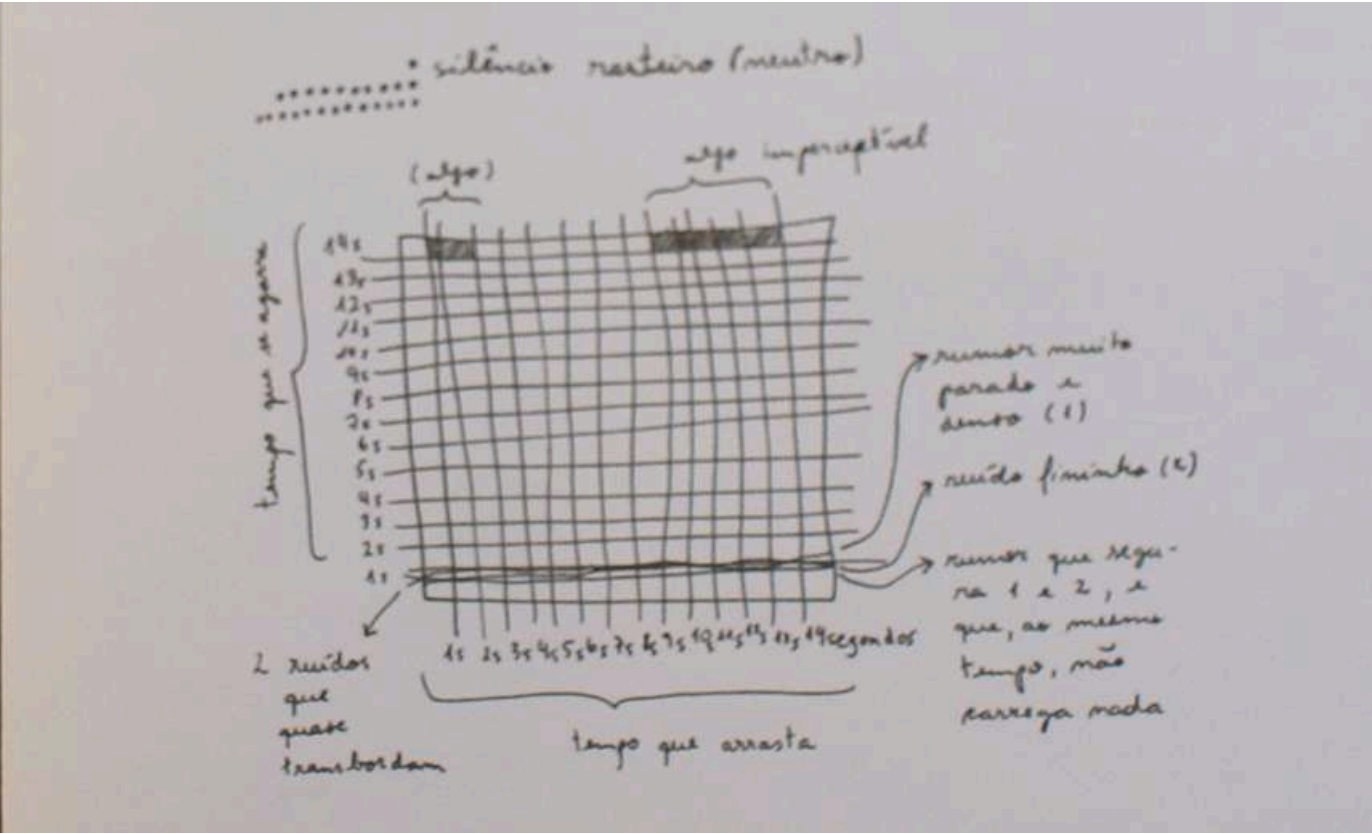 silêncio rasteiro (neutro)
(algo)
algo imperceptível
tempo que se agarra
14s
13s
12s
11s
10s
9s
8s
7s
6s
5s
4s
3s
2s
1s
rumor muito
parado e
denso (1)
ruído fininho (2)
rumor que segu-
ra 1 e 2, e
que, ao mesmo
tempo, não
carrega nada
2 ruídos
que
quase
transbordam
1s 2s 3s 4s 5s 6s 7s 8s 9s 10s 11s 12s 13s 14segondos
tempo que arrasta